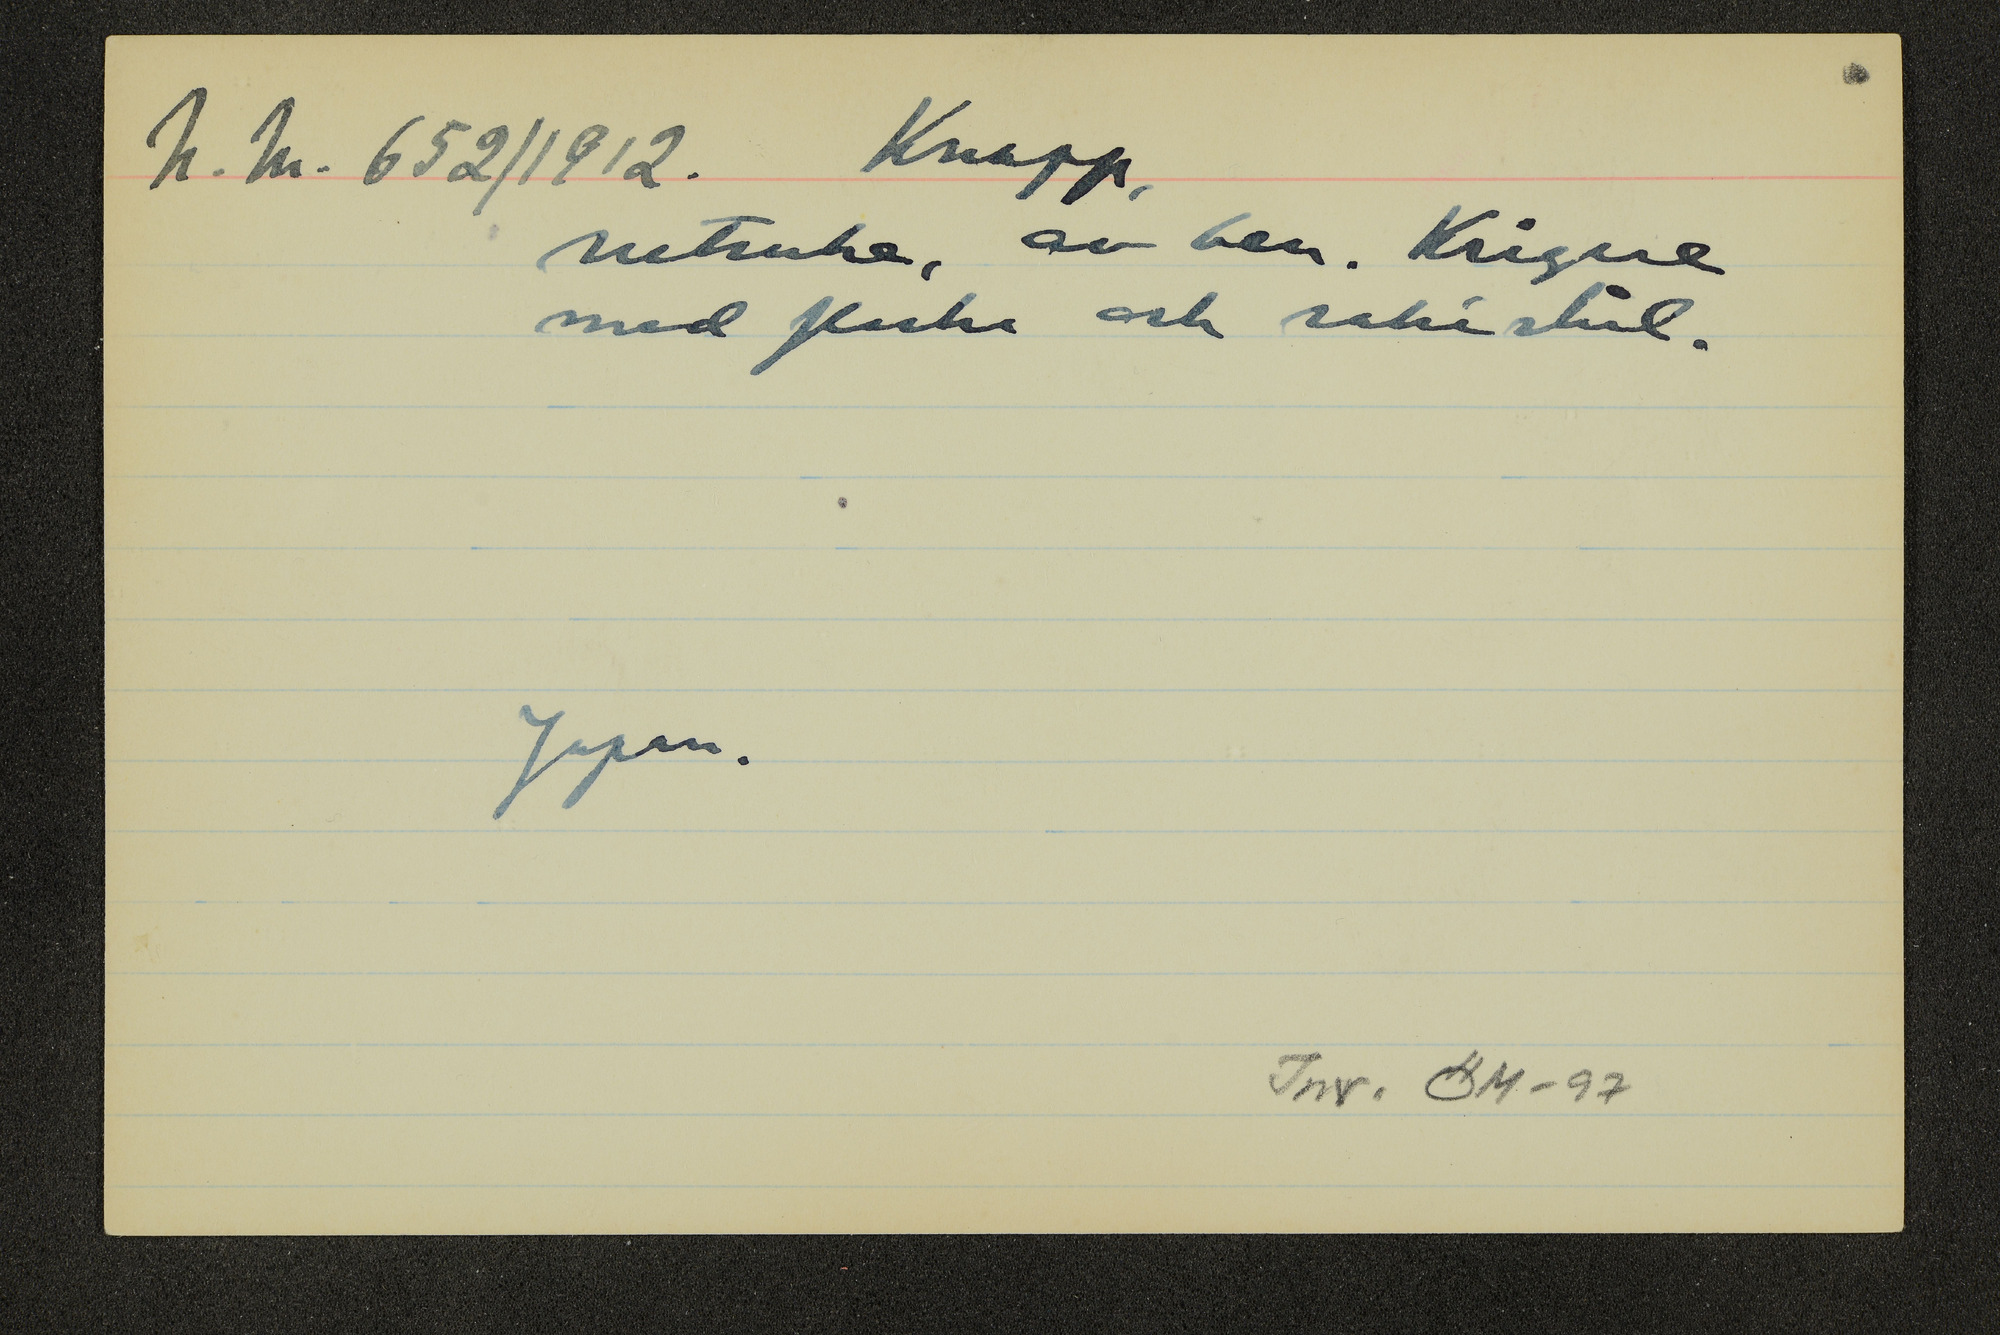 N. M. 652/1912. Knapp,
netsuke, av ben. Krigare
med flaska och sakéskål.
Japan.
Inv. ÖM-97